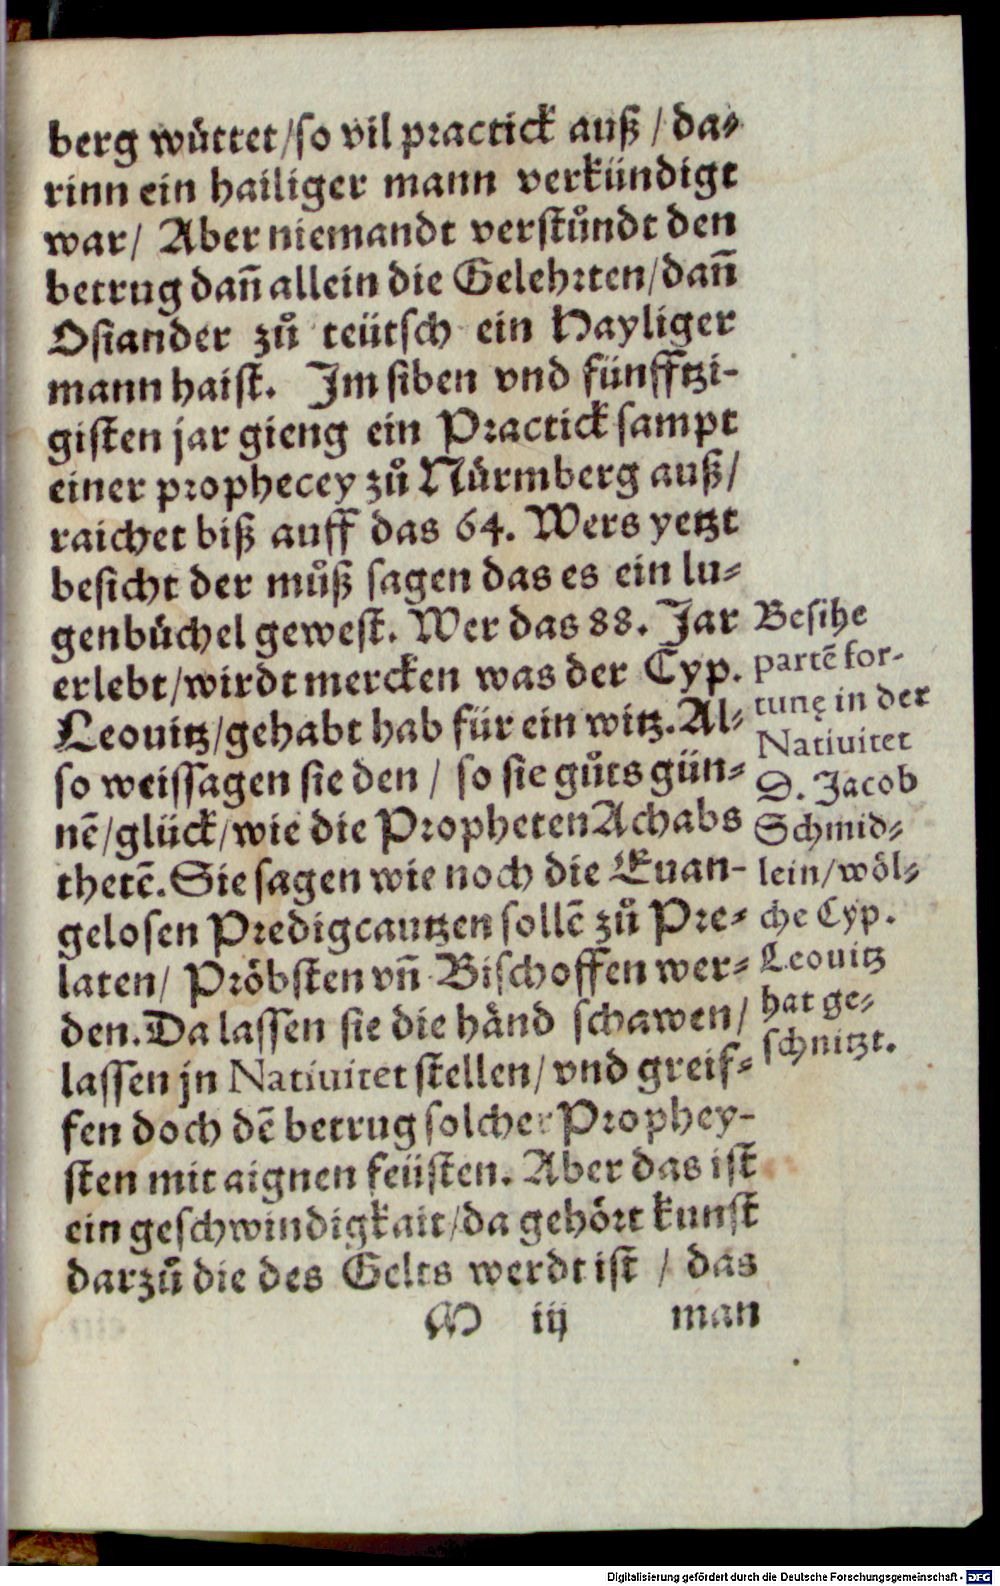 berg wüttet/so vil practick auß / da-
rinn ein hailiger mann verkündigt
war/ Aber niemandt verstůndt den
betrug dañ allein die Gelehrten/dañ
Osiander zů teütsch ein Hayliger
mann haist. Im siben vnd fünfftzi-
gisten jar gieng ein Practick sampt
einer prophecey zů Nürmberg auß/
raichet biß auff das 64. Wers yetzt
besicht der můß sagen das es ein lu-
genbüchel gewest. Wer das 88. Jar
erlebt/wirdt mercken was der Cyp.
Leouitz/gehabt hab für ein witz. Al-
so weissagen sie den / so sie gůts gün-
nē/glück/wie die Propheten Achabs
thetē. Sie sagen wie noch die Euan-
gelosen Predigcautzen sollē zů Pre-
laten/ Pröbsten vñ Bischoffen wer-
den. Da lassen sie die händ schawen/
lassen jn Natiuitet stellen/ vnd greif-
fen doch dē betrug solcher Prophey-
sten mit aignen feüsten. Aber das ist
ein geschwindigkait/da gehört kunst
darzů die des Gelts werdt ist / das
M iij man
Besihe
partē for-
tunę in der
Natiuitet
D. Jacob
Schmid-
lein/wöl-
che Cyp.
Leouitz
hat ge-
schnitzt.
Digitalisierung gefördert durch die Deutsche Forschungsgemeinschaft - DFG